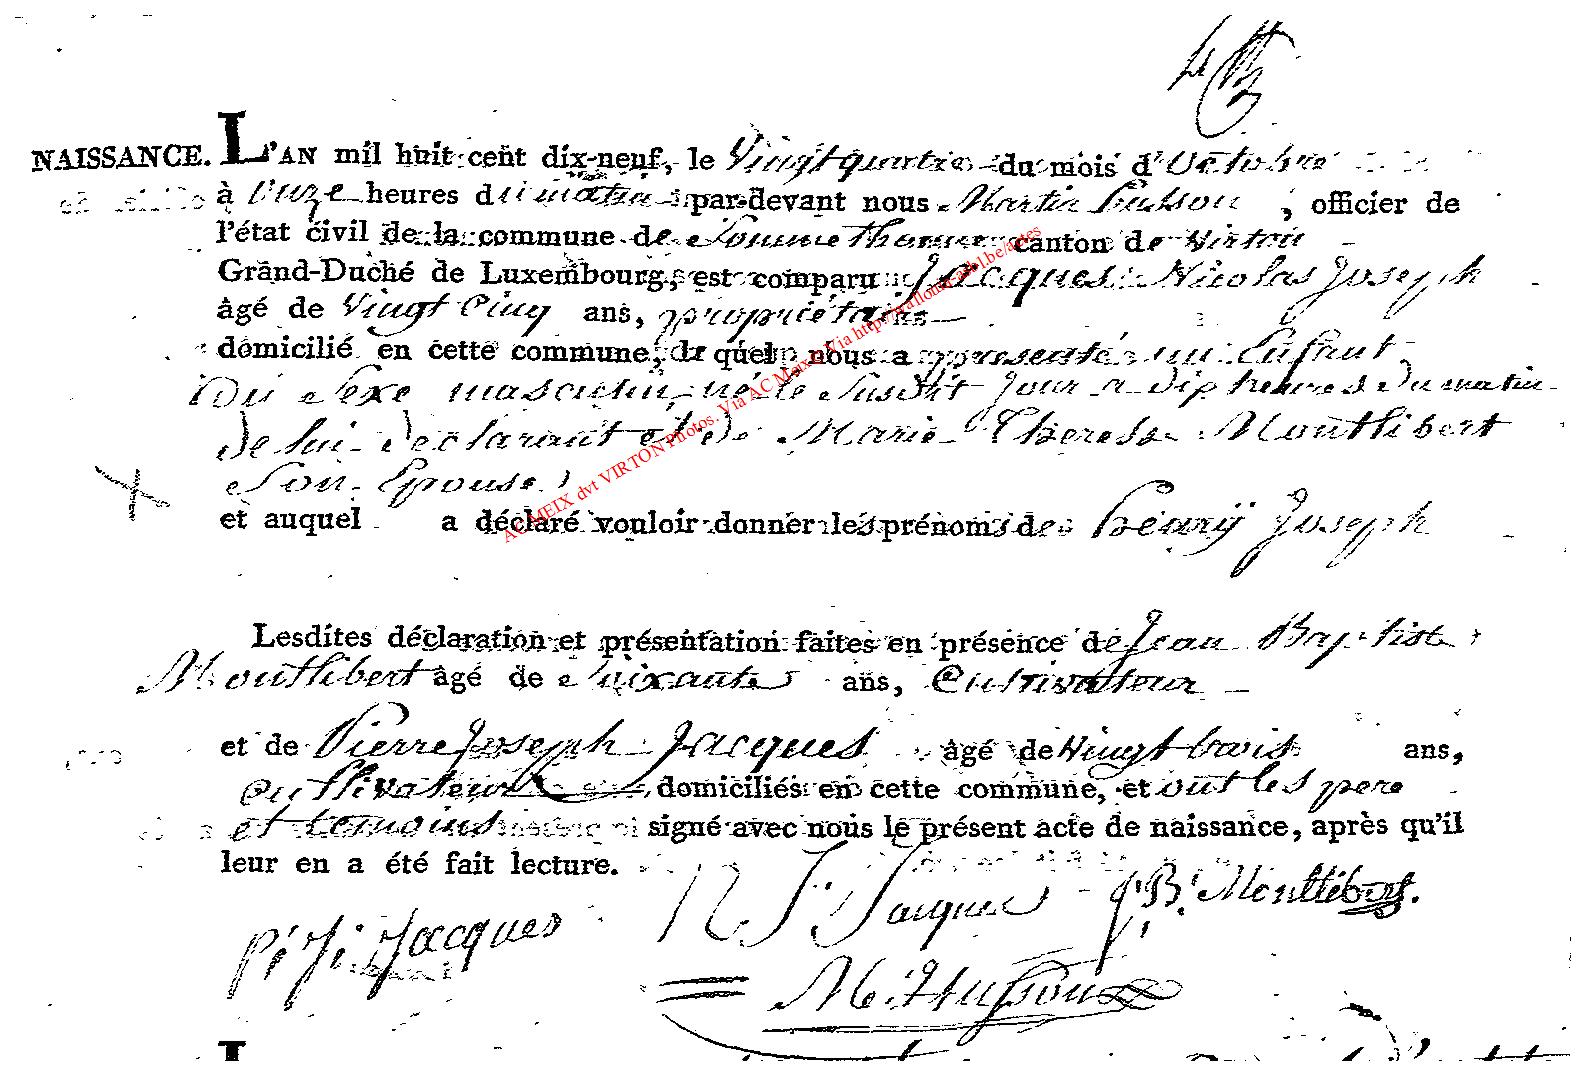 NAISSANCE. L'AN mil huit cent dix-neuf, le Vingt quatre du mois d'Octobre
à Onze heures du matin pardevant nous Martin Husson, officier de
l'état civil de la commune de Sommethonne canton de Virton
Grand-Duché de Luxembourg, est comparu Jacques Nicolas Joseph
âgé de Vingt Cinq ans, propriétaire
domicilié en cette commune, le quel nous a présenté un Enfant
Du Sexe masculin, né le Susdit Jour a dix heures Du matin
De lui declarant et de Marie Therese Montlibert
Son Epouse
et auquel a déclaré vouloir donner les prénoms de Henrÿ Joseph
Lesdites déclaration et présentation faites en présence de Jean Baptiste
Montlibert âgé de Soixante ans, Cultivateur
et de Pierre Joseph Jacques âgé de Vingt trois ans,
cultivateur domiciliés en cette commune, et ont les pere
et temoins signé avec nous le présent acte de naissance, après qu'il
leur en a été fait lecture.
N J Jacques J B Montlibert.
p: J: Jacques
M. Husson
AC MEIX dvt VIRTON Photos. Via AC Meix &